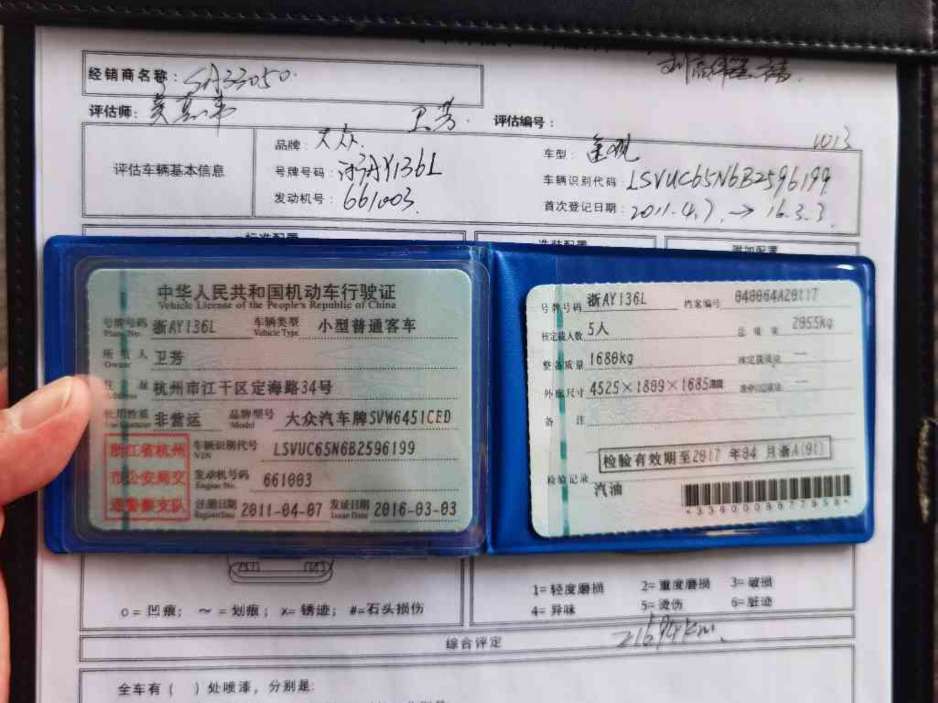 经销商名称：SA33050.
评估师：
卫芳.
评估编号：
1013
评估车辆基本信息
品牌：大众
车型：途观
号牌号码：浙AY136L
车辆识别代码：LSVUC65N6B2596199
发动机号：661003.
首次登记日期：2011.4.7. → 16.3.3
中华人民共和国机动车行驶证
Vehicle License of the People's Republic of China
号牌号码 浙AY136L 车辆类型 小型普通客车
Plate No. Vehicle Type
所有人 卫芳
Owner
住址 杭州市江干区定海路34号
使用性质 非营运 品牌型号 大众汽车牌SVW6451CED
Use Character Model
浙江省杭州
市公安局交
通警察支队
车辆识别代号 LSVUC65N6B2596199
VIN
发动机号码 661003
Engine No.
注册日期 2011-04-07 发证日期 2016-03-03
Register Date Issue Date
号牌号码 浙AY136L 档案编号
核定载人数 5人 总质量 2055kg
整备质量 1680kg 核定载质量 —
外廓尺寸 4525×1809×1685 准牵引总质量 —
备注
检验有效期至2017年04月浙A(01)
检验记录
汽油
o=凹痕； ～=划痕； x=锈迹； #=石头损伤
1=轻度磨损 2=重度磨损 3=破损
4=异味 5=烫伤 6=脏迹
综合评定
全车有（ ）处喷漆，分别是: